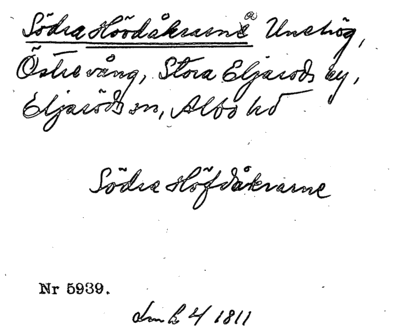 Södra Hövdåkrarne Unchög,
Östre vång, Stora Eljaröds by,
Eljaröds sn, Albo hd
Södra Höfdåkrarne
Nr 5939.
4/ 1811